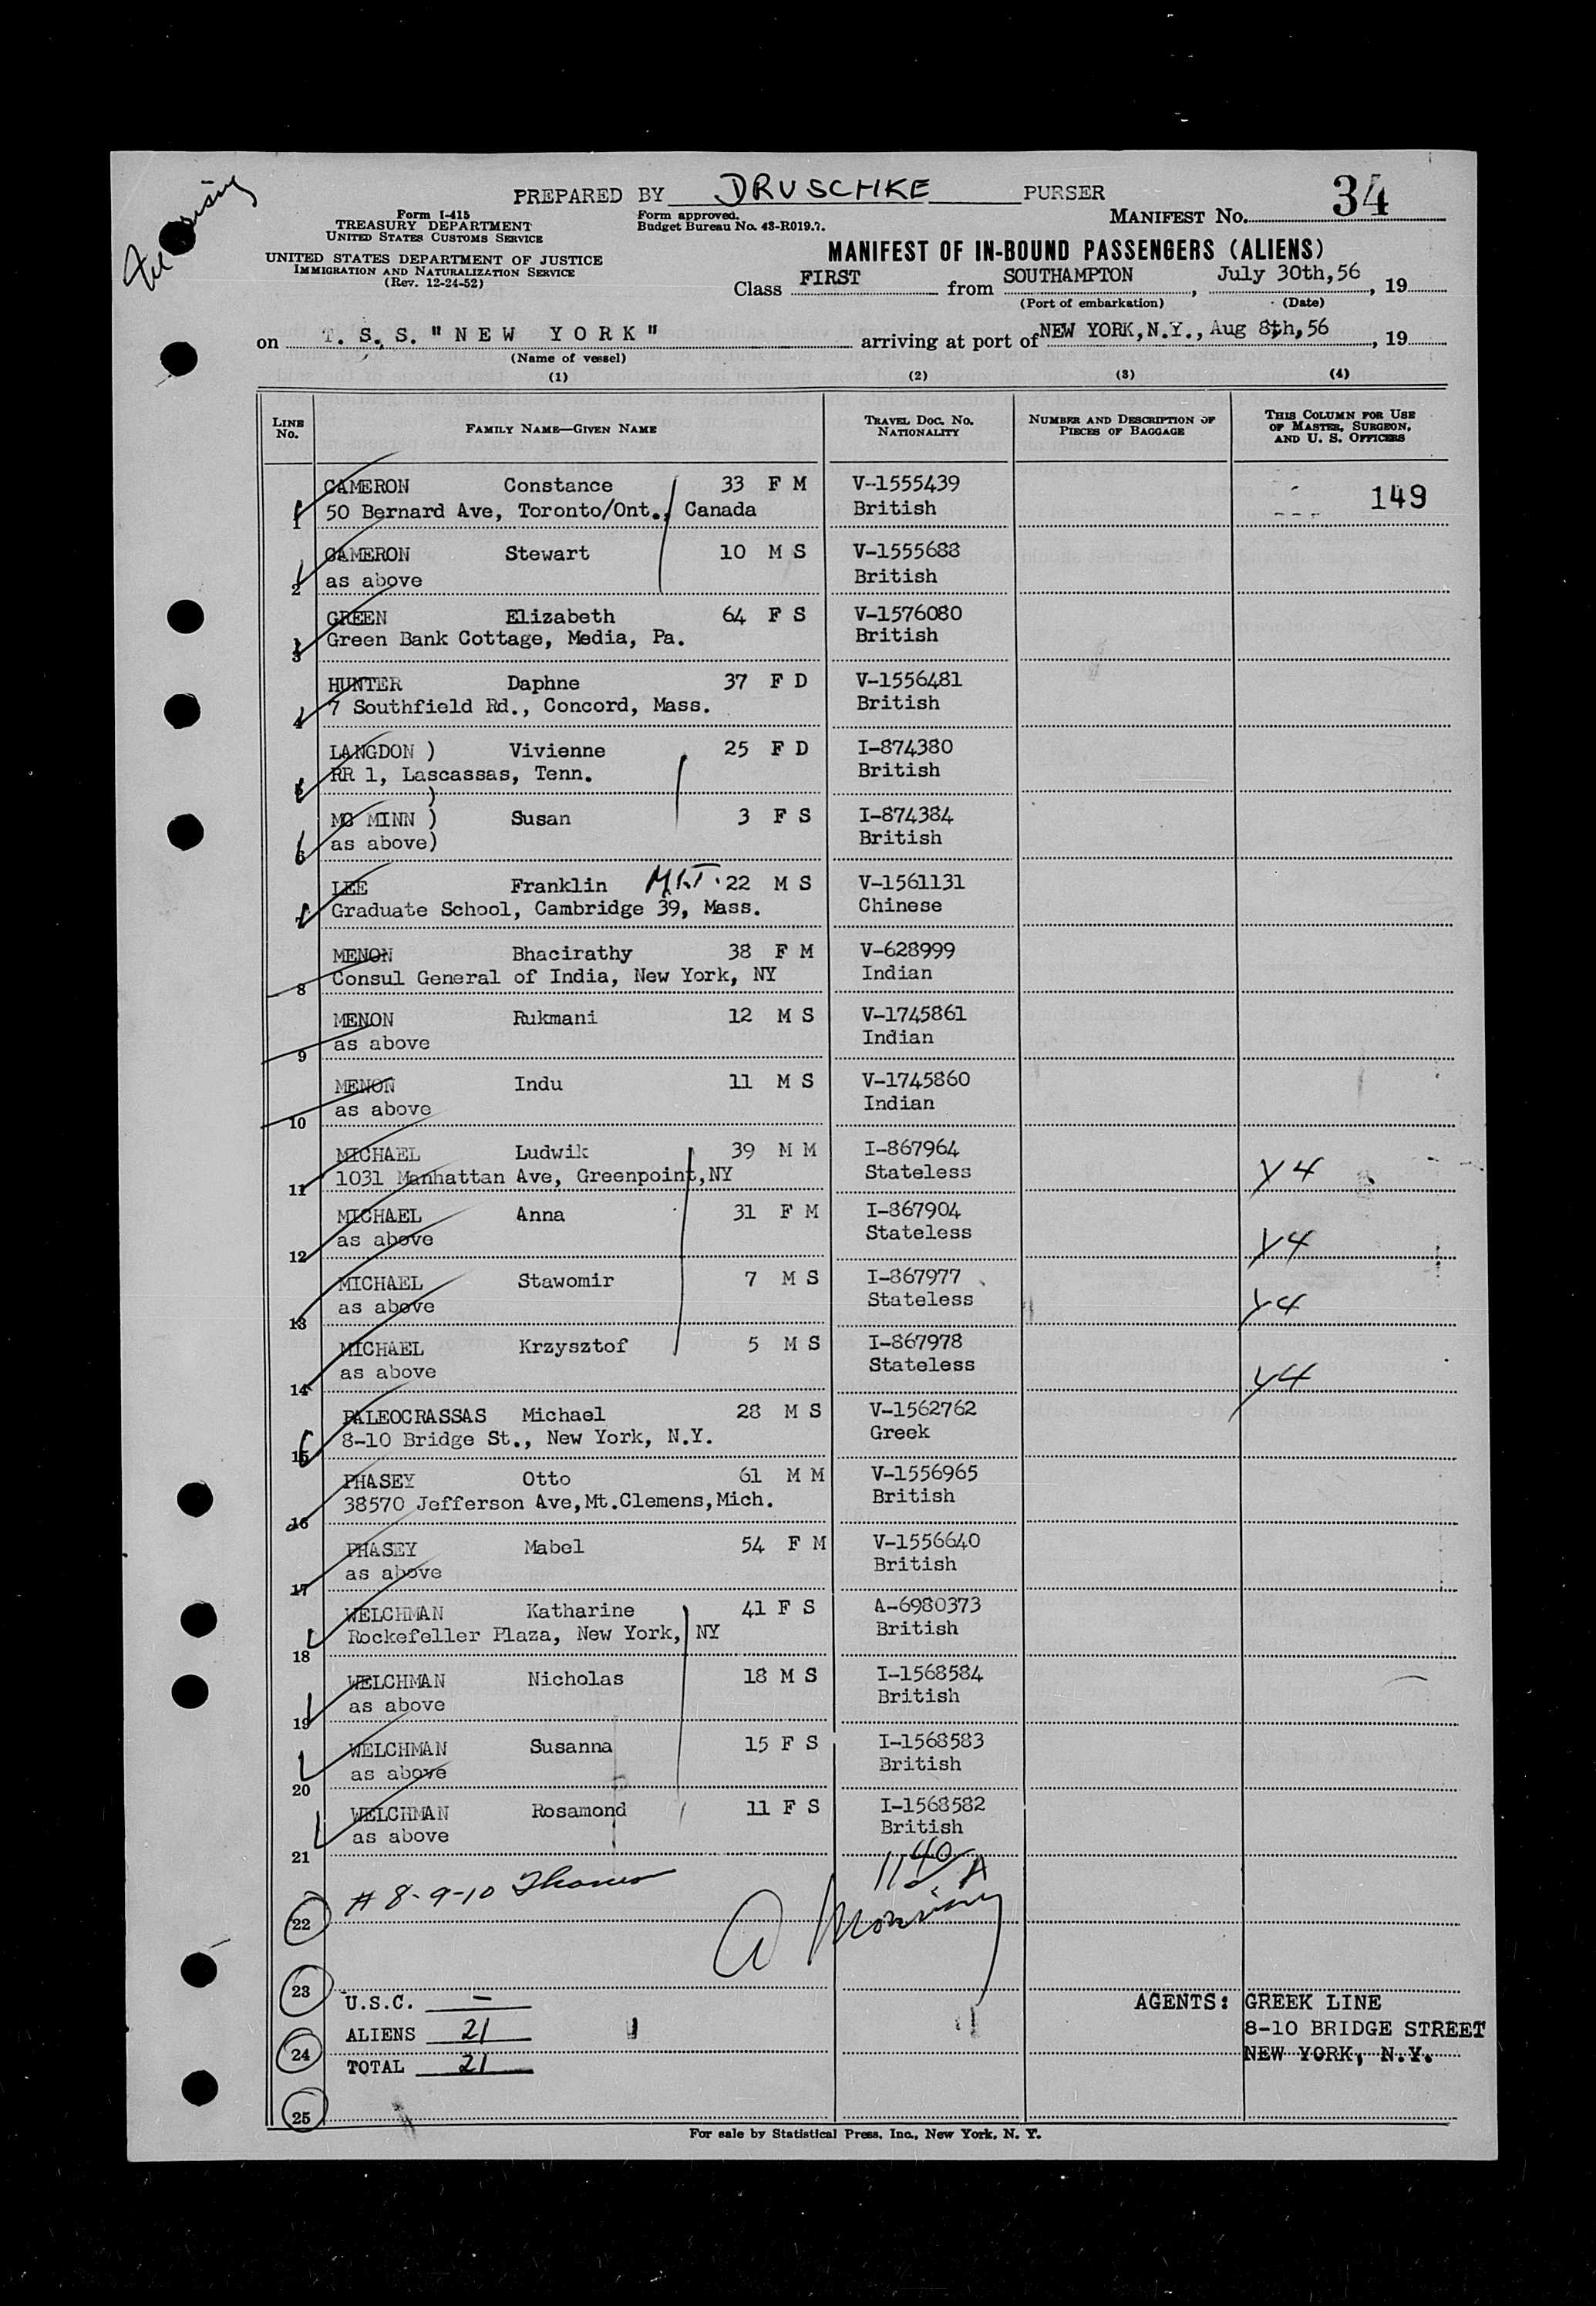 PREPARED BY DRUSCHKE PURSER
34
Form I-415
TREASURY DEPARTMENT
UNITED STATES CUSTOMS SERVICE
Form approved.
Budget Bureau No. 43-R019.7.
MANIFEST No.
UNITED STATES DEPARTMENT OF JUSTICE
IMMIGRATION AND NATURALIZATION SERVICE
(Rev. 12-24-52)
MANIFEST OF IN-BOUND PASSENGERS (ALIENS)
Class FIRST from SOUTHAMPTON, July 30th, 56, 19
(Port of embarkation) (Date)
on T. S. S. "NEW YORK" arriving at port of NEW YORK, N.Y., Aug 8th, 56, 19
(Name of vessel)
(1) (2) (3) (4)
LINE No. FAMILY NAME—GIVEN NAME TRAVEL DOC. No. NATIONALITY NUMBER AND DESCRIPTION OF PIECES OF BAGGAGE THIS COLUMN FOR USE OF MASTER, SURGEON, AND U. S. OFFICERS
CAMERON Constance 33 F M V-1555439
1 50 Bernard Ave, Toronto/Ont., Canada British 149
CAMERON Stewart 10 M S V-1555688
2 as above British
GREEN Elizabeth 64 F S V-1576080
3 Green Bank Cottage, Media, Pa. British
HUNTER Daphne 37 F D V-1556481
4 7 Southfield Rd., Concord, Mass. British
LANGDON ) Vivienne 25 F D I-874380
5 RR 1, Lascassas, Tenn. British
)
MC MINN ) Susan 3 F S I-874384
6 as above) British
LEE Franklin M.I.T. 22 M S V-1561131
7 Graduate School, Cambridge 39, Mass. Chinese
MENON Bhacirathy 38 F M V-628999
8 Consul General of India, New York, NY Indian
MENON Rukmani 12 M S V-1745861
9 as above Indian
MENON Indu 11 M S V-1745860
10 as above Indian
MICHAEL Ludwik 39 M M I-867964
11 1031 Manhattan Ave, Greenpoint, NY Stateless Y4
MICHAEL Anna 31 F M I-867904
12 as above Stateless Y4
MICHAEL Stawomir 7 M S I-867977
13 as above Stateless Y4
MICHAEL Krzysztof 5 M S I-867978
14 as above Stateless Y4
PALEOCRASSAS Michael 28 M S V-1562762
15 8-10 Bridge St., New York, N.Y. Greek
PHASEY Otto 61 M M V-1556965
16 38570 Jefferson Ave, Mt.Clemens, Mich. British
PHASEY Mabel 54 F M V-1556640
17 as above British
WELCHMAN Katharine 41 F S A-6980373
18 Rockefeller Plaza, New York, NY British
WELCHMAN Nicholas 18 M S I-1568584
19 as above British
WELCHMAN Susanna 15 F S I-1568583
20 as above British
WELCHMAN Rosamond 11 F S I-1568582
21 as above British
1140 A
22 # 8-9-10
23
U.S.C. - AGENTS: GREEK LINE
ALIENS 21 8-10 BRIDGE STREET
24 TOTAL 21 NEW YORK, N.Y.
25
For sale by Statistical Press, Inc., New York, N. Y.